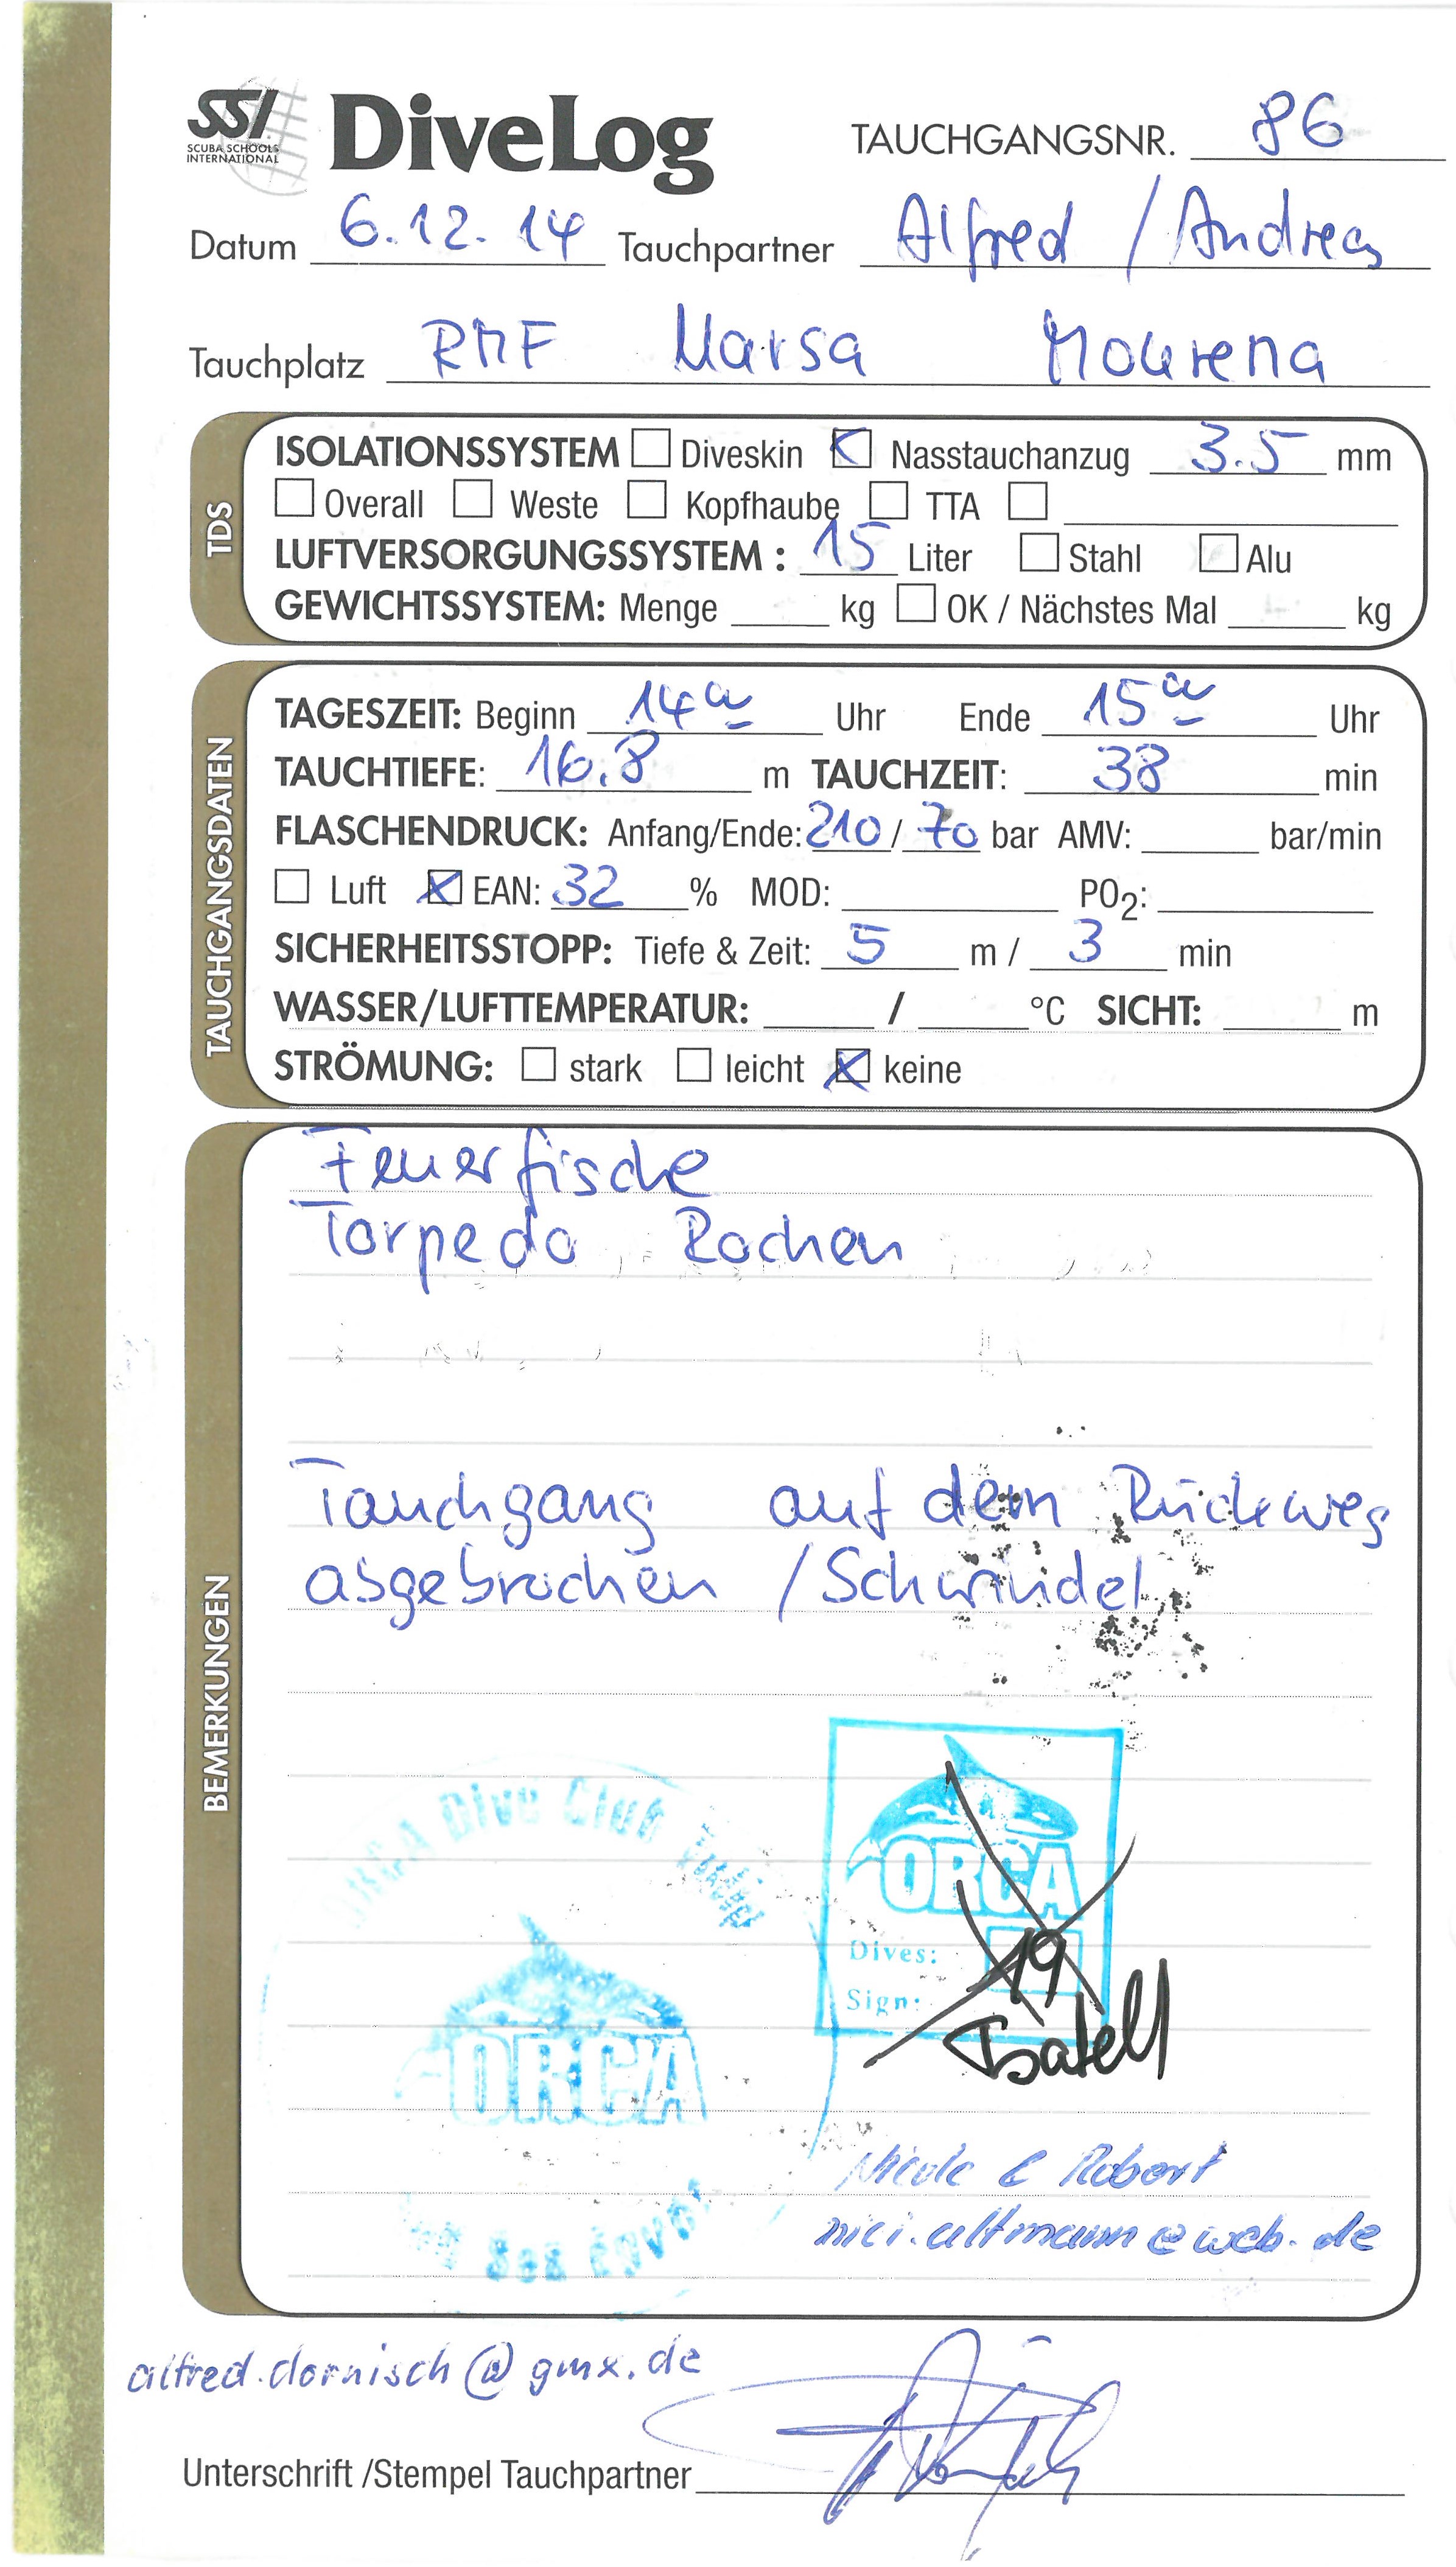 SSI
SCUBA SCHOOLS
INTERNATIONAL
DiveLog
TAUCHGANGSNR. 86
Datum 6.12.14 Tauchpartner Alfred / Andrea
Tauchplatz RMF Marsa Mourena
TDS
ISOLATIONSSYSTEM Diveskin Nasstauchanzug 3.5 mm
Overall Weste Kopfhaube TTA
LUFTVERSORGUNGSSYSTEM : 15 Liter Stahl Alu
GEWICHTSSYSTEM: Menge kg OK / Nächstes Mal kg
TAUCHGANGSDATEN
TAGESZEIT: Beginn 14 Uhr Ende 15 Uhr
TAUCHTIEFE: 16.8 m TAUCHZEIT: 38 min
FLASCHENDRUCK: Anfang/Ende: 210 / 70 bar AMV: bar/min
Luft EAN: 32 % MOD: PO2:
SICHERHEITSSTOPP: Tiefe & Zeit: 5 m / 3 min
WASSER/LUFTTEMPERATUR: / °C SICHT: m
STRÖMUNG: stark leicht keine
BEMERKUNGEN
Feuerfische
Torpedo Rochen
Tauchgang auf dem Rückweg
abgebrochen / Schwindel
ORCA Dive Club
ORCA
ORCA
Dives: 19
Sign:
Nicole & Robert
nici.altmann@web.de
alfred.dornisch@gmx.de
Unterschrift /Stempel Tauchpartner